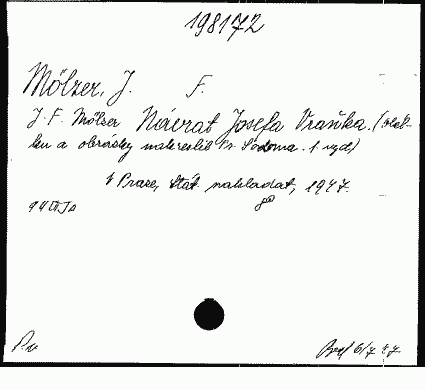 198172
Mölzer, J. F.
J. F. Mölzer Návrat Josefa Vraňka. (obál-
ku a obrázky nakreslil Fr. Sodoma. 1. vyd)
V Praze, Stát. nakladat, 1947.
8°